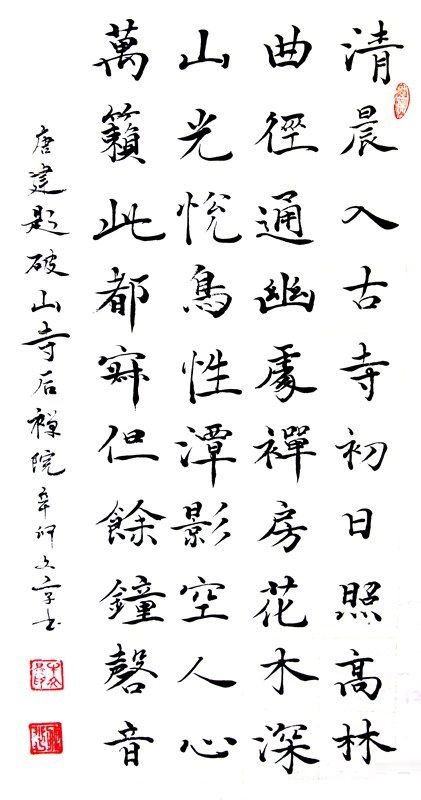 清晨入古寺初日照高林
曲徑通幽處禪房花木深
山光悅鳥性潭影空人心
萬籟此都寂但餘鐘磬音
唐建题破山寺后禅院辛卯文书